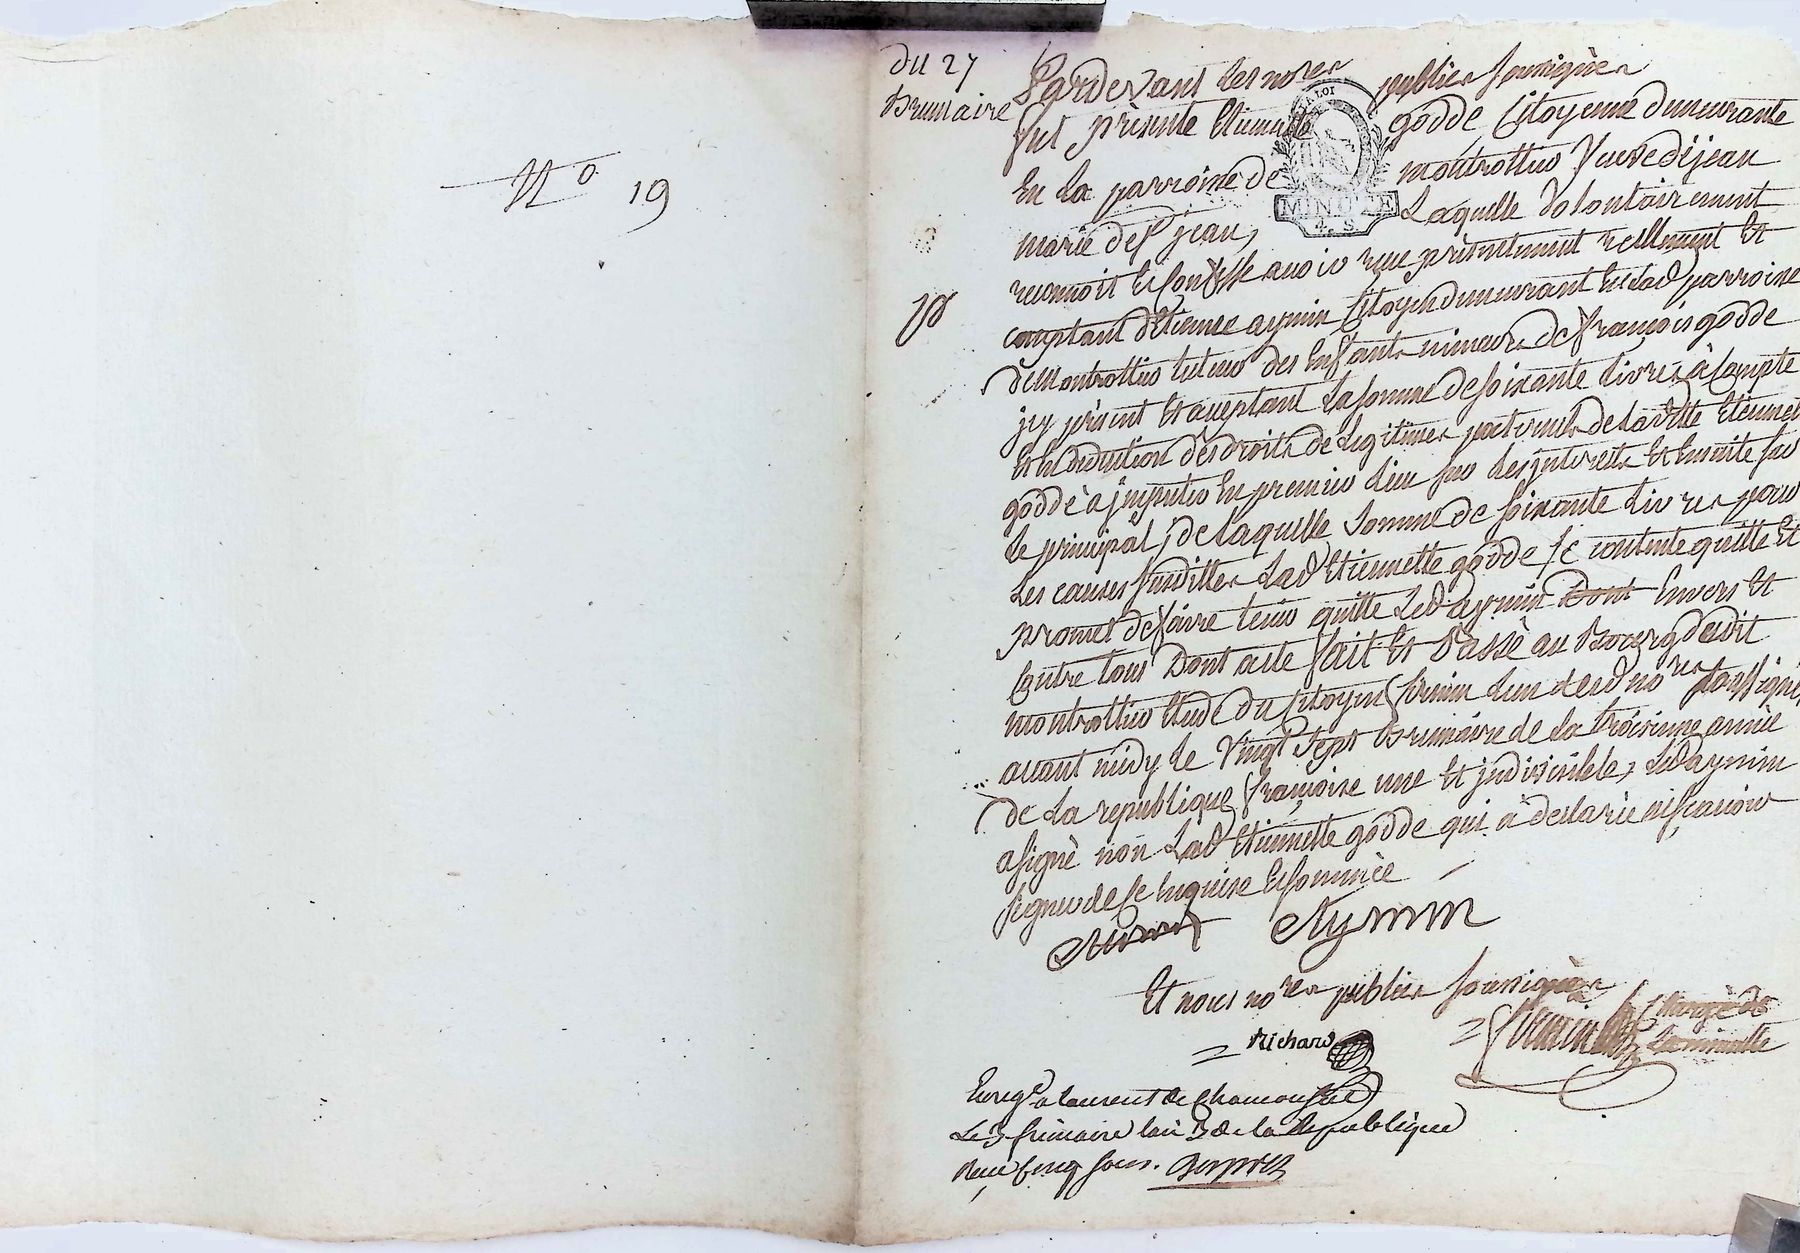 N° 19
Du 27
Brumaire
LA LOI
MINUTE
4. S
Pardevant les no.res publics soussignés
fut présente Etiennette godde Citoyenne demeurante
En La parroisse de montrottier Veuve de jean
marie de St jean, Laquelle Volontairement
reconnoit et Confesse avoir reçue présentement réellement Et
comptant d'Etienne aymin Citoyen demeurant En lad parroisse
de Montrottier tuteur des Enfants mineurs de françois godde
jcy présent Et aceptant La somme de soixante Livres à Compte
Et En déduction des droits de Legitimes paternels de La ditte Etiennette
godde à jmputer En premier Lieu sur Les jnterests Et Ensuite sur
Le principal, de Laquelle Somme de soixante Livres pour
Les causes susdittes Lad Etiennette godde se contente quitte Et
promet de faire tenir quitte Led aymin Dont Envers Et
Contre tous Dont acte fait Et Passé au Bourg dudit
montrottier Etude du Citoyen firmin L'un desd no.res soussignés
avant midy Le Vingt Sept Brumaire de La troisieme année
de La republique françoise une Et jndivisible, Led aymin
a signé non Lad Etiennette godde qui à déclaré ne sçavoir
signer de ce Enquise Et sommée
Aymin
Et nous no.res publics soussignés
Richard
firmin Chargé de
La minutte
Enreg.é a Laurent de Chamousset
Le 3 frimaire L'an 3 de La Republique
Reçu Cinq sous.